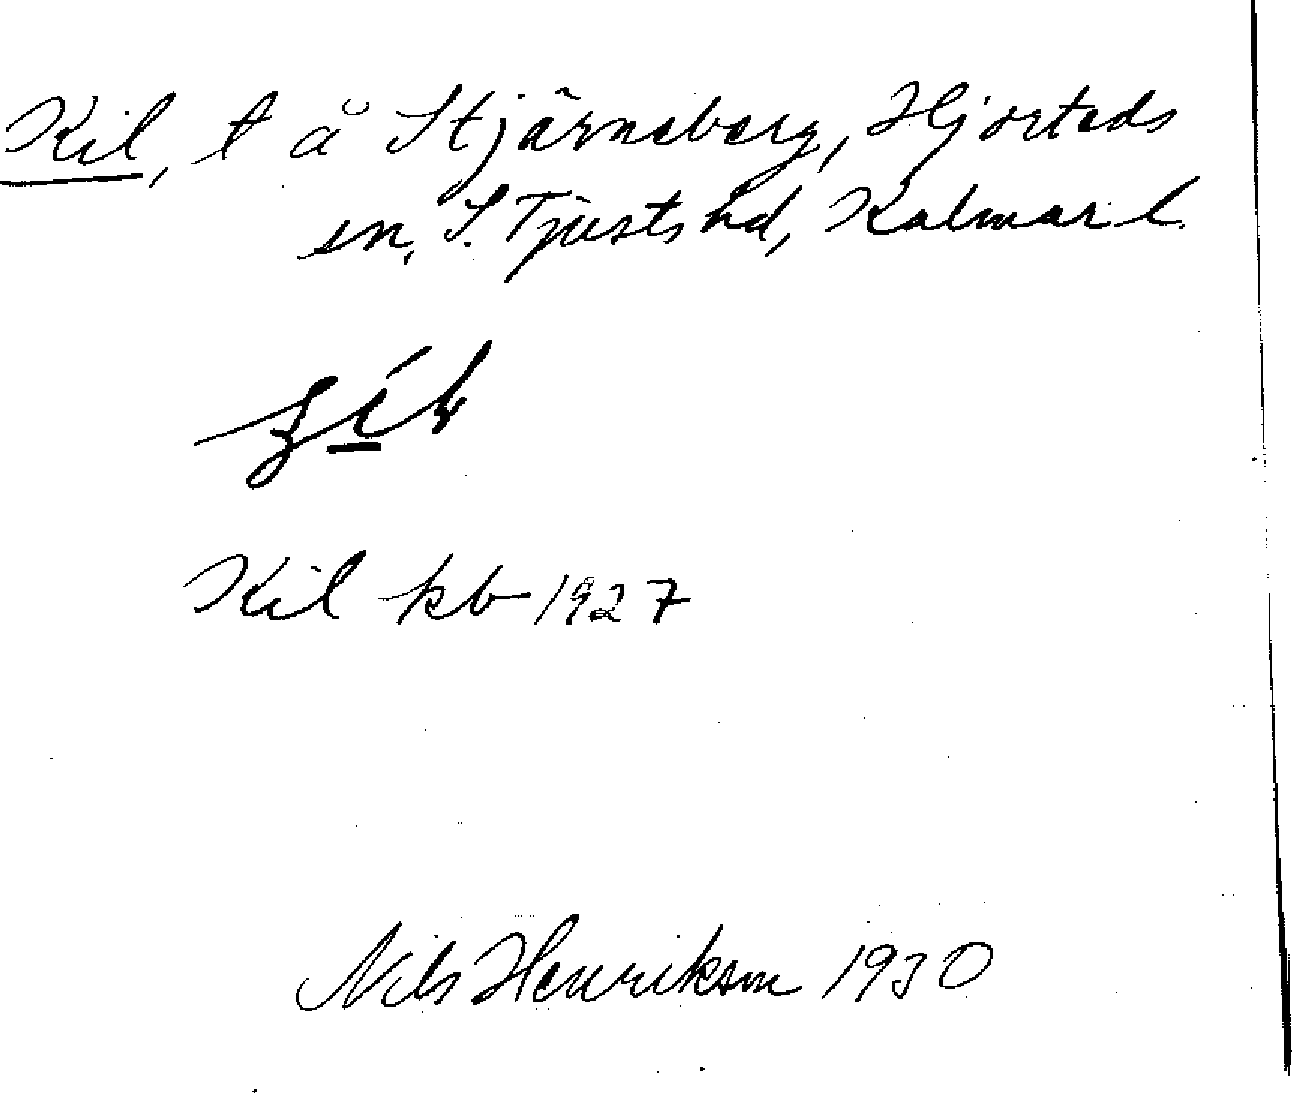 Kil, t å Stjärneberg, Hjorteds
sn, S. Tjusts hd, Kalmar l.
Kil kb 1927
Nils Henrikson 1930